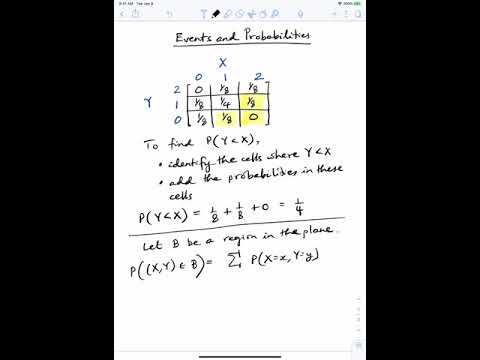 9:41 AM Tue Jan 9
Events and Probabilities
X
0 1 2
2 0 1/8 1/8
Y 1 1/8 1/4 1/8
0 1/8 1/8 0
To find P(Y<X),
• identify the cells where Y<X
• add the probabilities in these
cells
P(Y<X) = 1/8 + 1/8 + 0 = 1/4
Let B be a region in the plane.
P((X,Y) ∈ B) = Σ P(X=x, Y=y)